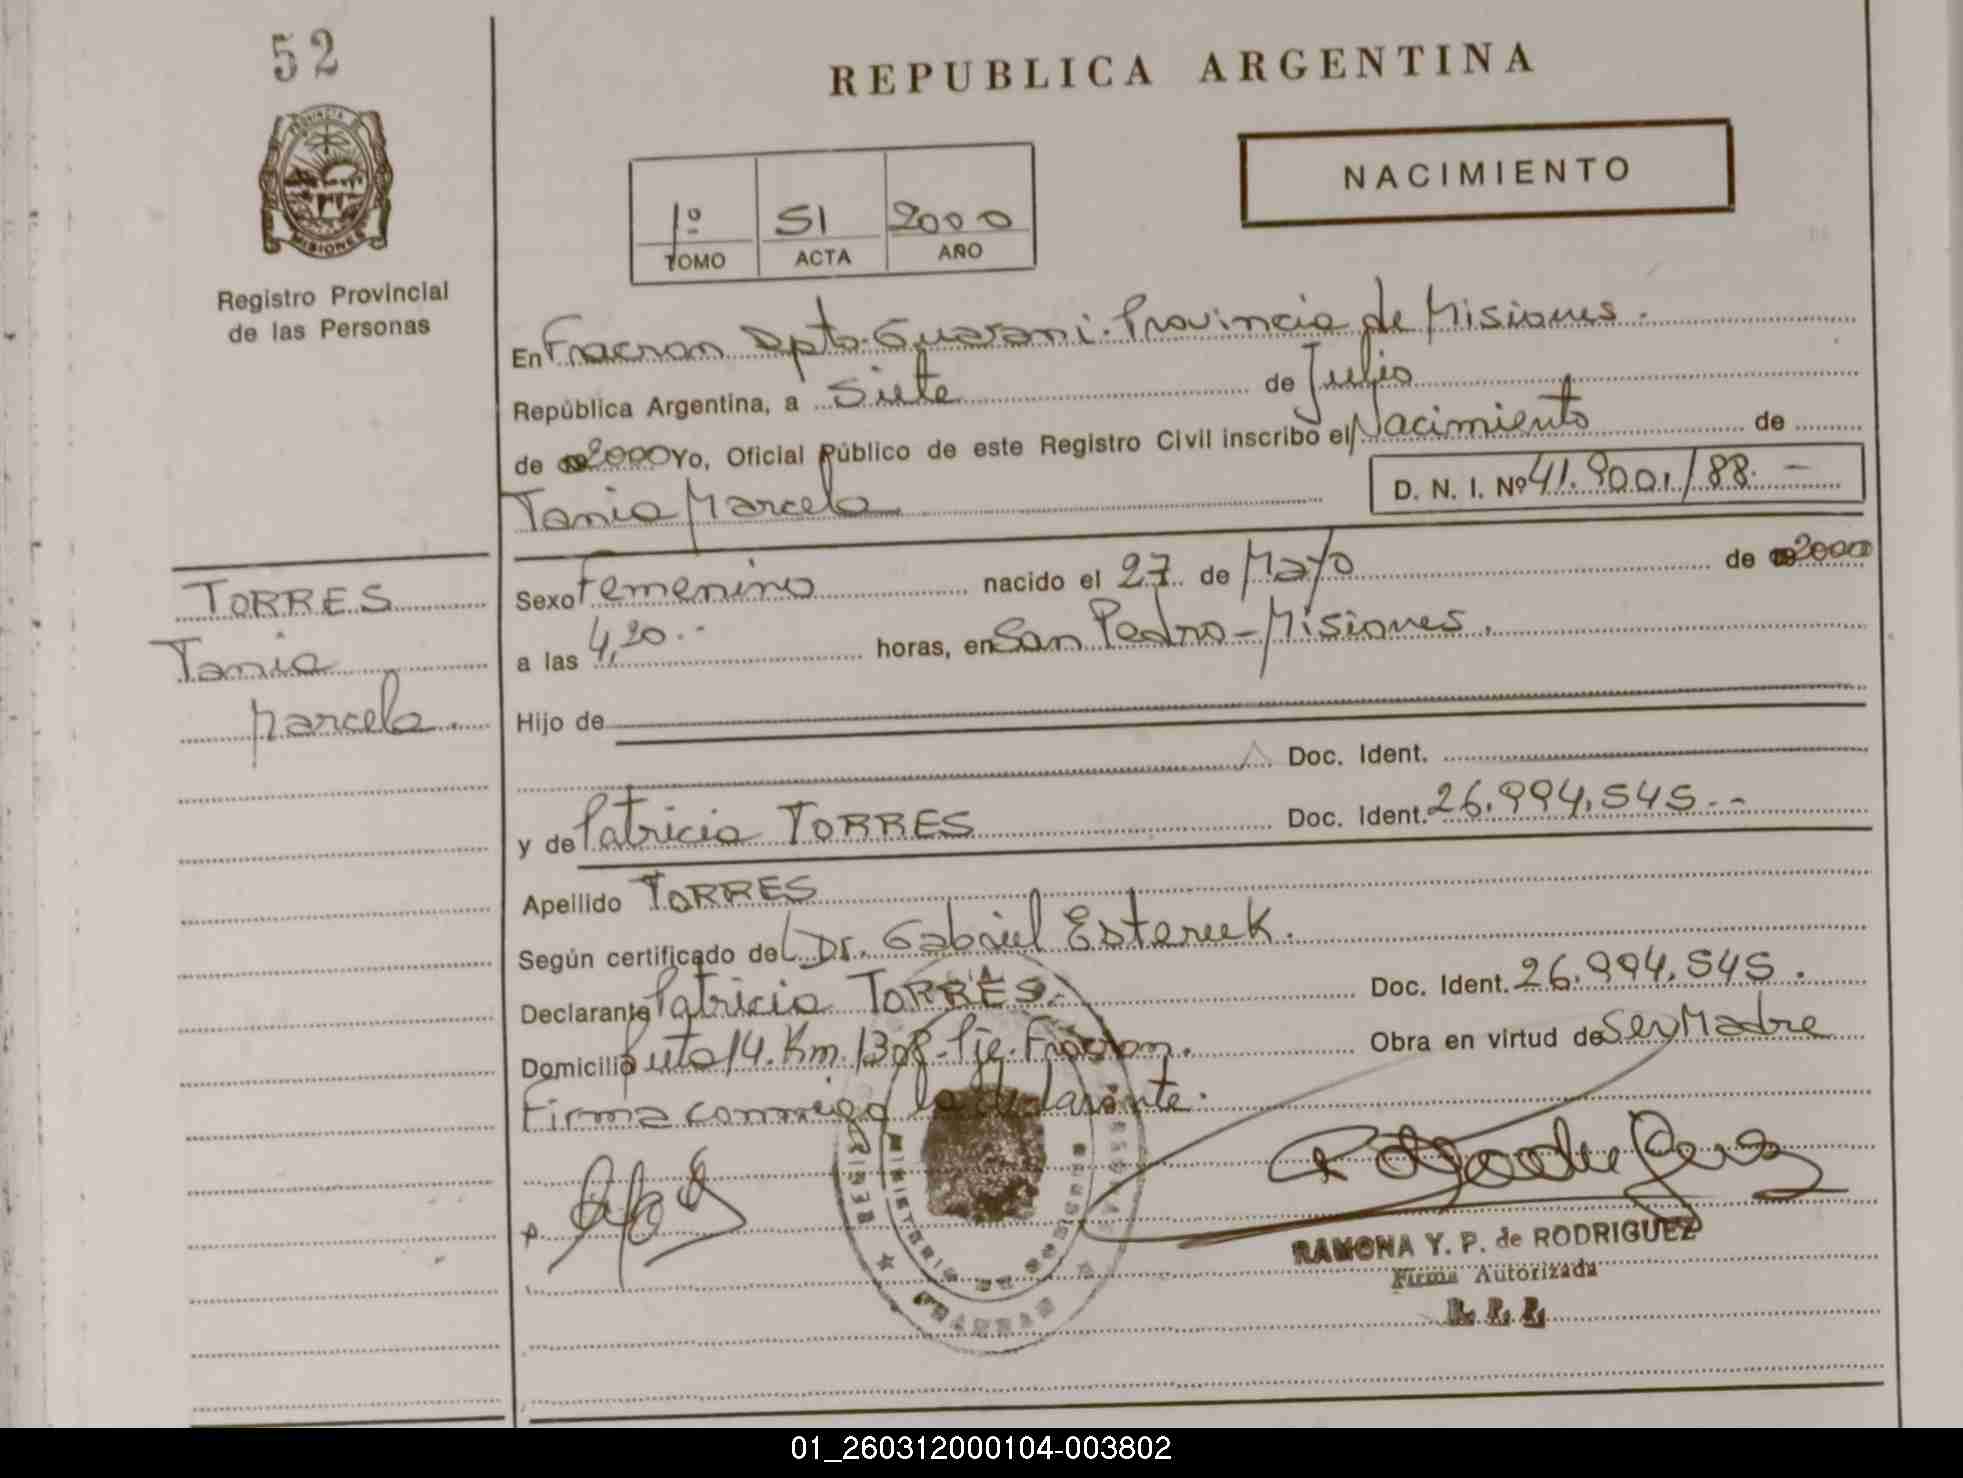 52
REPUBLICA ARGENTINA
NACIMIENTO
PROVINCIA DE
MISIONES
1º 51 2000
TOMO ACTA AÑO
Registro Provincial
de las Personas
En Fracran Dpto. Guarani. Provincia de Misiones.
República Argentina, a siete de Julio
de 2000 Yo, Oficial Público de este Registro Civil inscribo el Nacimiento de
Tania Marcela
D. N. I. Nº 41.9001/88.-
TORRES
Tania
Marcela.
Sexo Femenino nacido el 27 de Mayo de 2000
a las 4,20.- horas, en San Pedro - Misiones.
Hijo de
Doc. Ident.
y de Patricia TORRES Doc. Ident. 26.994.545.--
Apellido TORRES
Según certificado del Dr. Gabriel
Declarante Patricia TORRES. Doc. Ident. 26.994.545.
Domicilio Ruta 14. Km. 1308. Pje. Fracran. Obra en virtud de Ser Madre
Firma conmigo la declarante.
MINISTERIO DE GOBIERNO
FRACRAN
RAMONA Y. P. de RODRIGUEZ
Firma Autorizada
R. P. P.
01_260312000104-003802